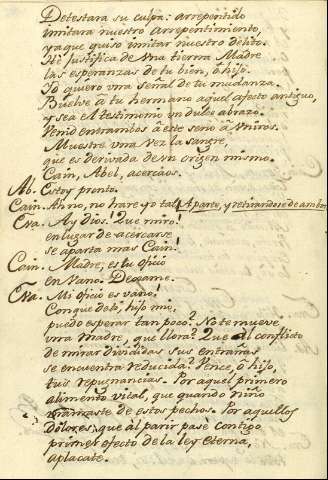 Detestara su culpa: arrepentido
imitara nuestro arrepentimiento,
ya que quiso imitar nuestro delito.
Assi justifica de Una tierna Madre
las esperanzas de tu bien, ô hijo.
Yo quiero una señal de tu mudanza.
Buelve â tu hermano aquel afecto antiguo,
y sea el testimonio un dulce abrazo.
Venid entrambos â este seno â Uniros.
Muestre una vez la sangre,
que es derivada de un origen mismo.
Cain, Abel, acercaos.
Ab. Estoy pronto.
Cain. Ah no, no hare yo tal. Aparte, y retirandose de ambos
Eva. Ay Dios! Que miro!
en lugar de acercarse
se aparta mas Cain!
Cain. Madre, es tu oficio
en Vano. Dexame.
Eva. Mi oficio es vano!
Conque de ti, hijo mio,
puedo esperar tan poco? No te mueve
una madre, que llora? Que al conflicto
de miras divididas sus entrañas
se encuentra reducida? Vence, ô hijo,
tus repugnancias. Por aquel primero
alimento vital, que quando niño
mamaste de estos pechos. Por aquellos
dolores, que al parir pasè contigo
primer efecto de la ley eterna,
aplacate.